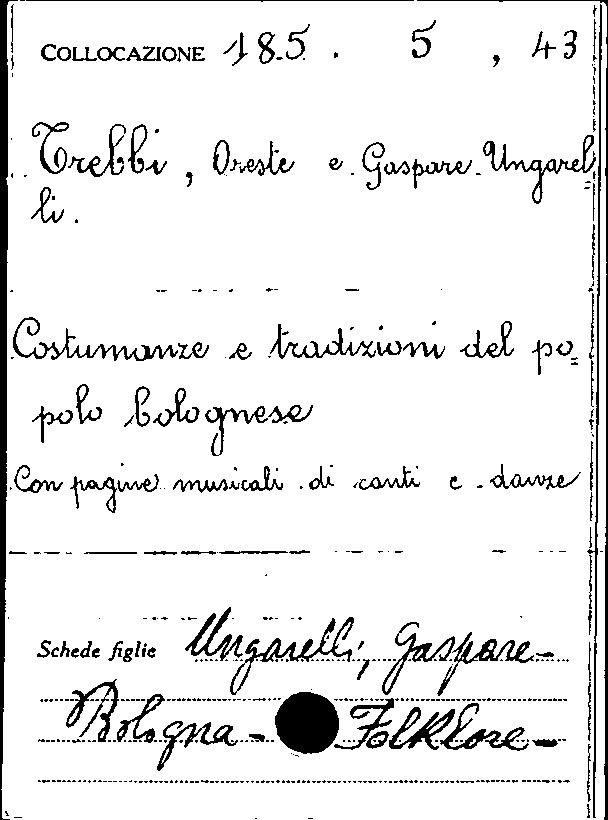 COLLOCAZIONE 185. 5, 43
Trebbi, Oreste e Gaspare Ungarel=
li.
Costumanze e tradizioni del po=
polo bolognese
Con pagine musicali di canti e danze
Schede figlie Ungarelli, Gaspare-
Bologna - Folklore-